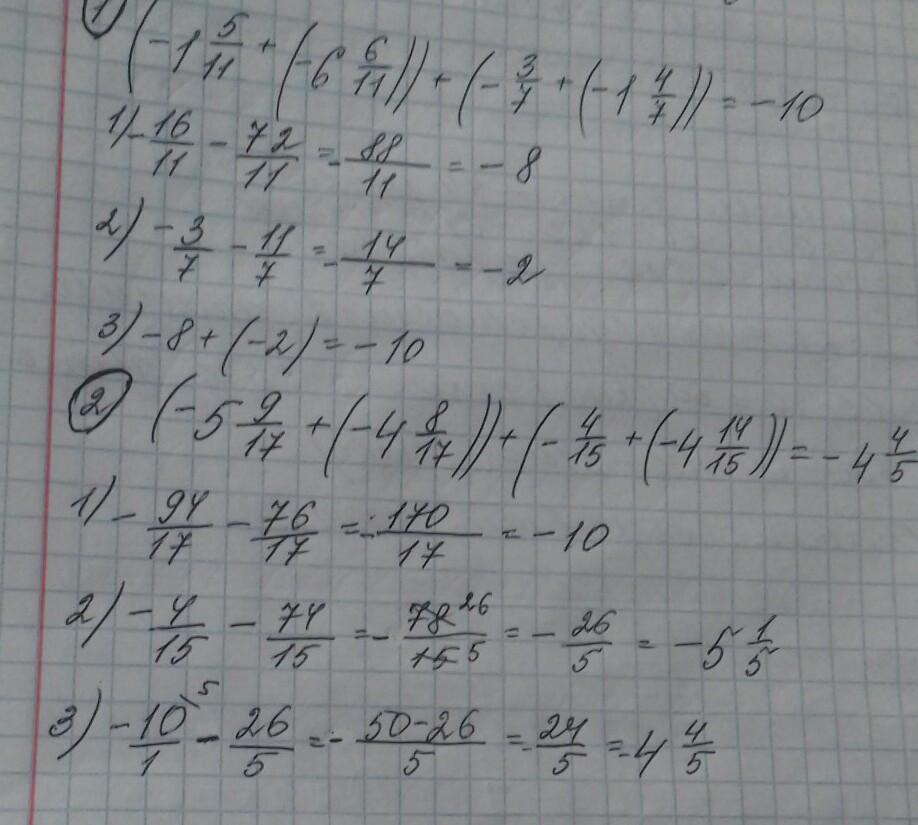 1) (-1 5/11 + (-6 6/11)) + (-3/7 + (-1 4/7)) = -10
1) -16/11 - 72/11 = -88/11 = -8
2) -3/7 - 11/7 = -14/7 = -2
3) -8 + (-2) = -10
2) (-5 9/17 + (-4 8/17)) + (-4/15 + (-4 14/15)) = -4 4/5
1) -94/17 - 76/17 = -170/17 = -10
2) -4/15 - 74/15 = -78 26/15 5 = -26/5 = -5 1/5
3) -10 \5/1 - 26/5 = -50-26/5 = -24/5 = -4 4/5